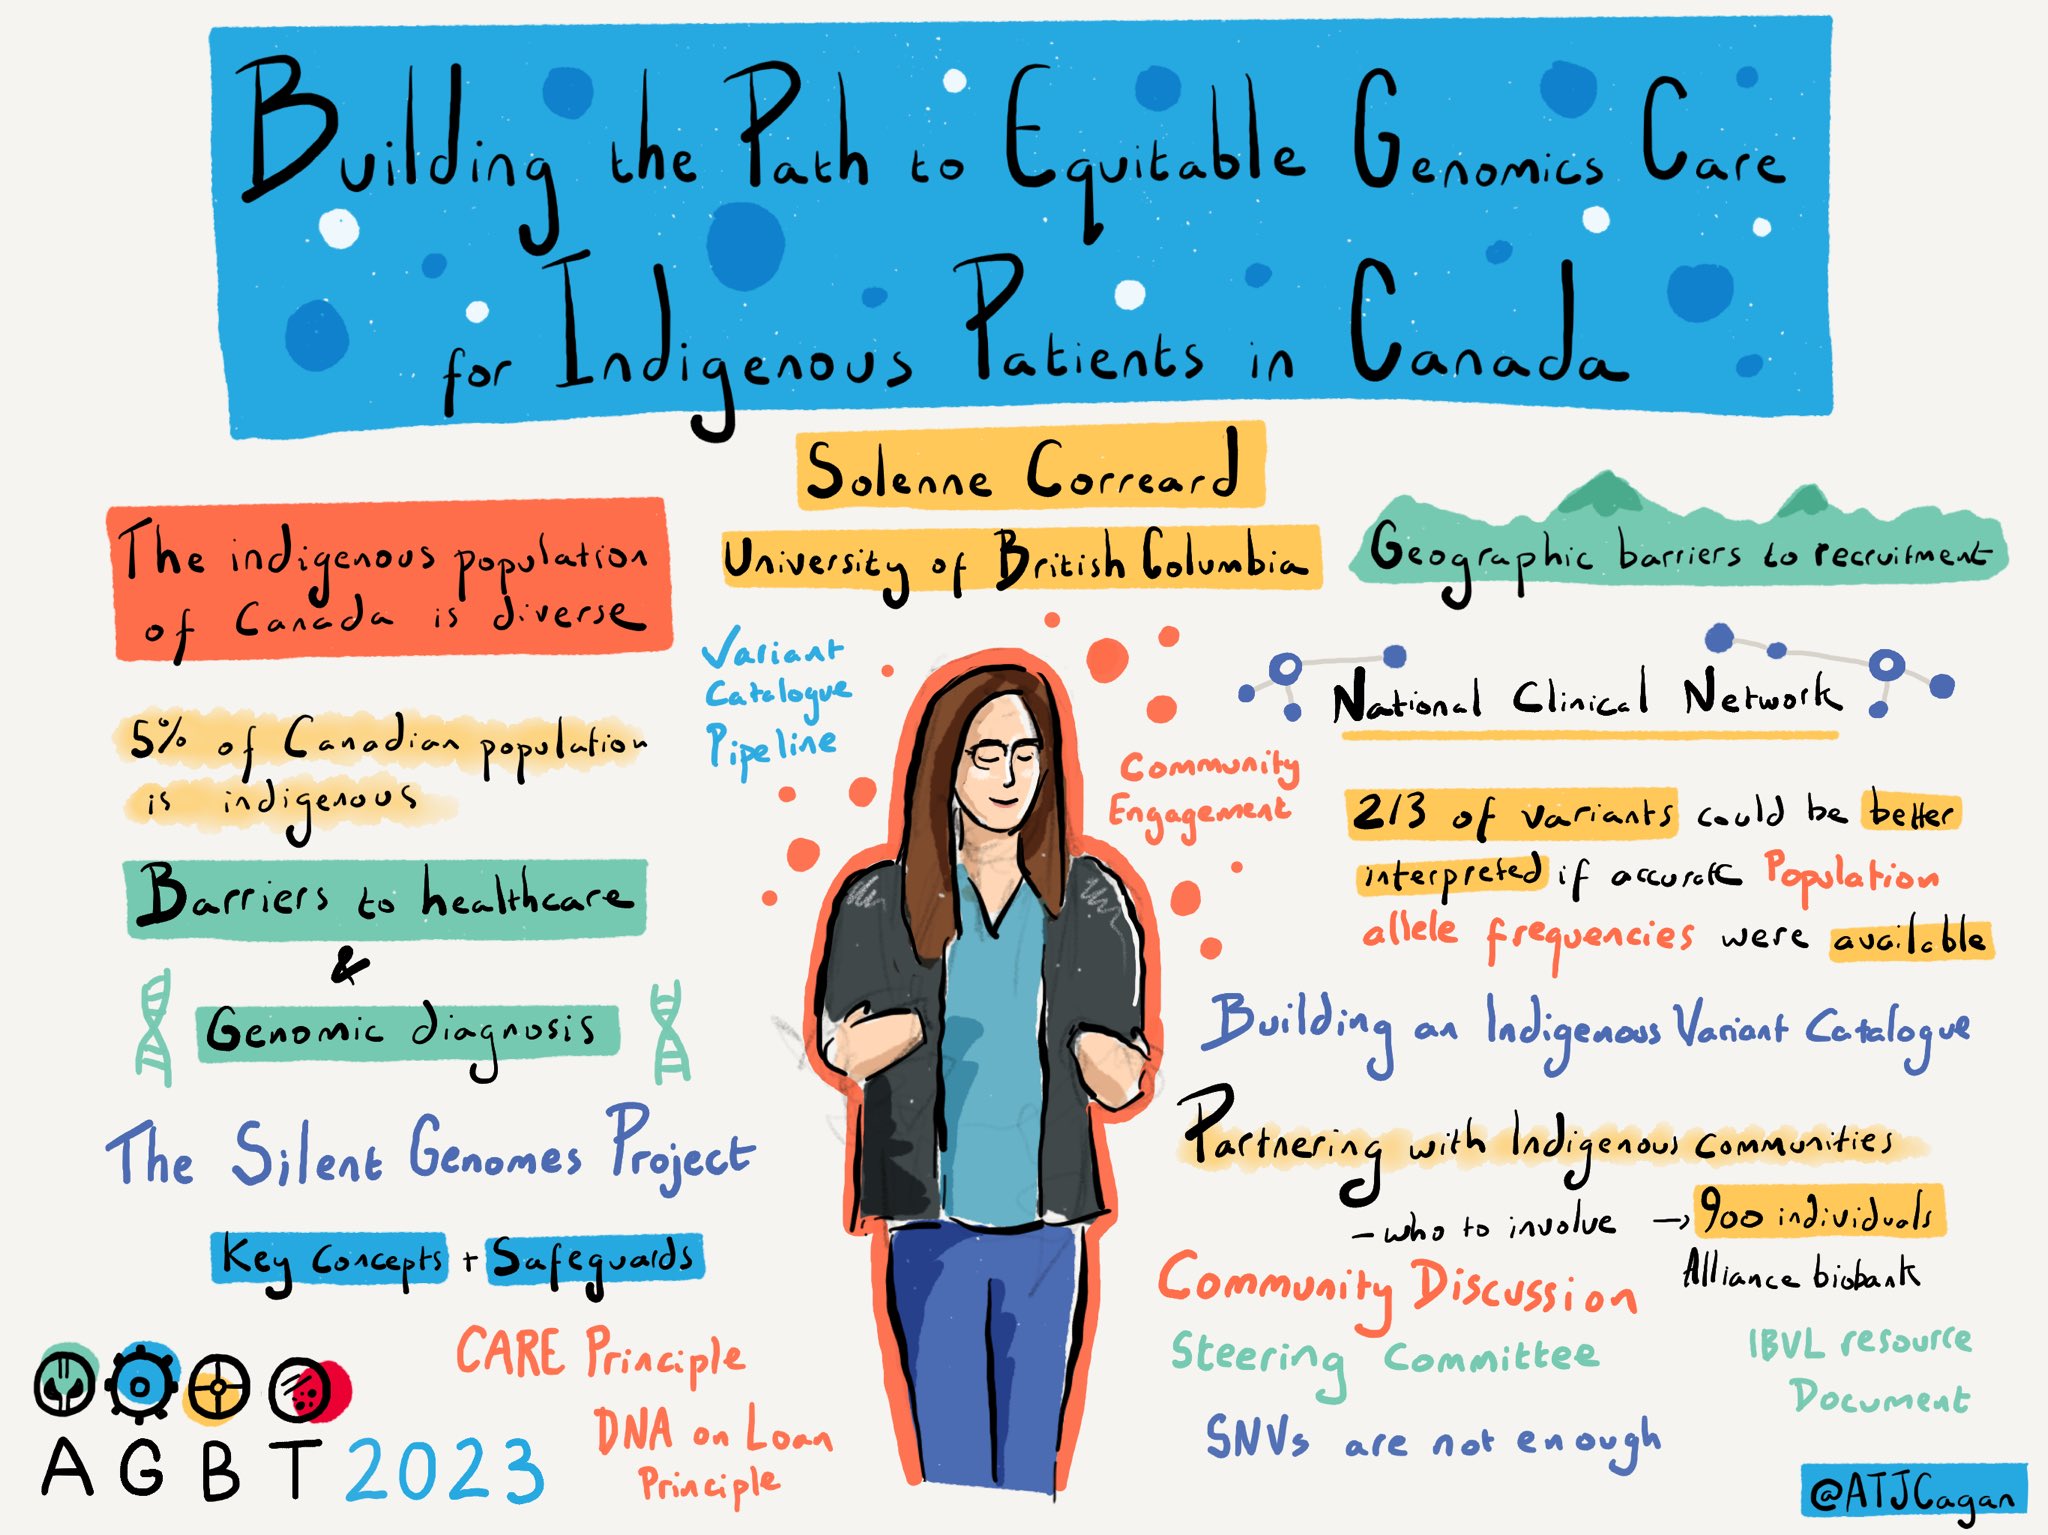 Building the Path to Equitable Genomics Care
for Indigenous Patients in Canada
Solenne Correard
University of British Columbia
The indigenous population
of Canada is diverse
5% of Canadian population
is indigenous
Barriers to healthcare
&
Genomic diagnosis
The Silent Genomes Project
Key Concepts + Safeguards
CARE Principle
DNA on Loan
Principle
AGBT 2023
Variant
Catalogue
Pipeline
Community
Engagement
Geographic barriers to recruitment
National Clinical Network
2/3 of variants could be better
interpreted if accurate Population
allele frequencies were available
Building an Indigenous Variant Catalogue
Partnering with Indigenous communities
- who to involve → 900 individuals
Alliance biobank
Community Discussion
Steering Committee
IBVL resource
Document
SNVs are not enough
@ATJCagan